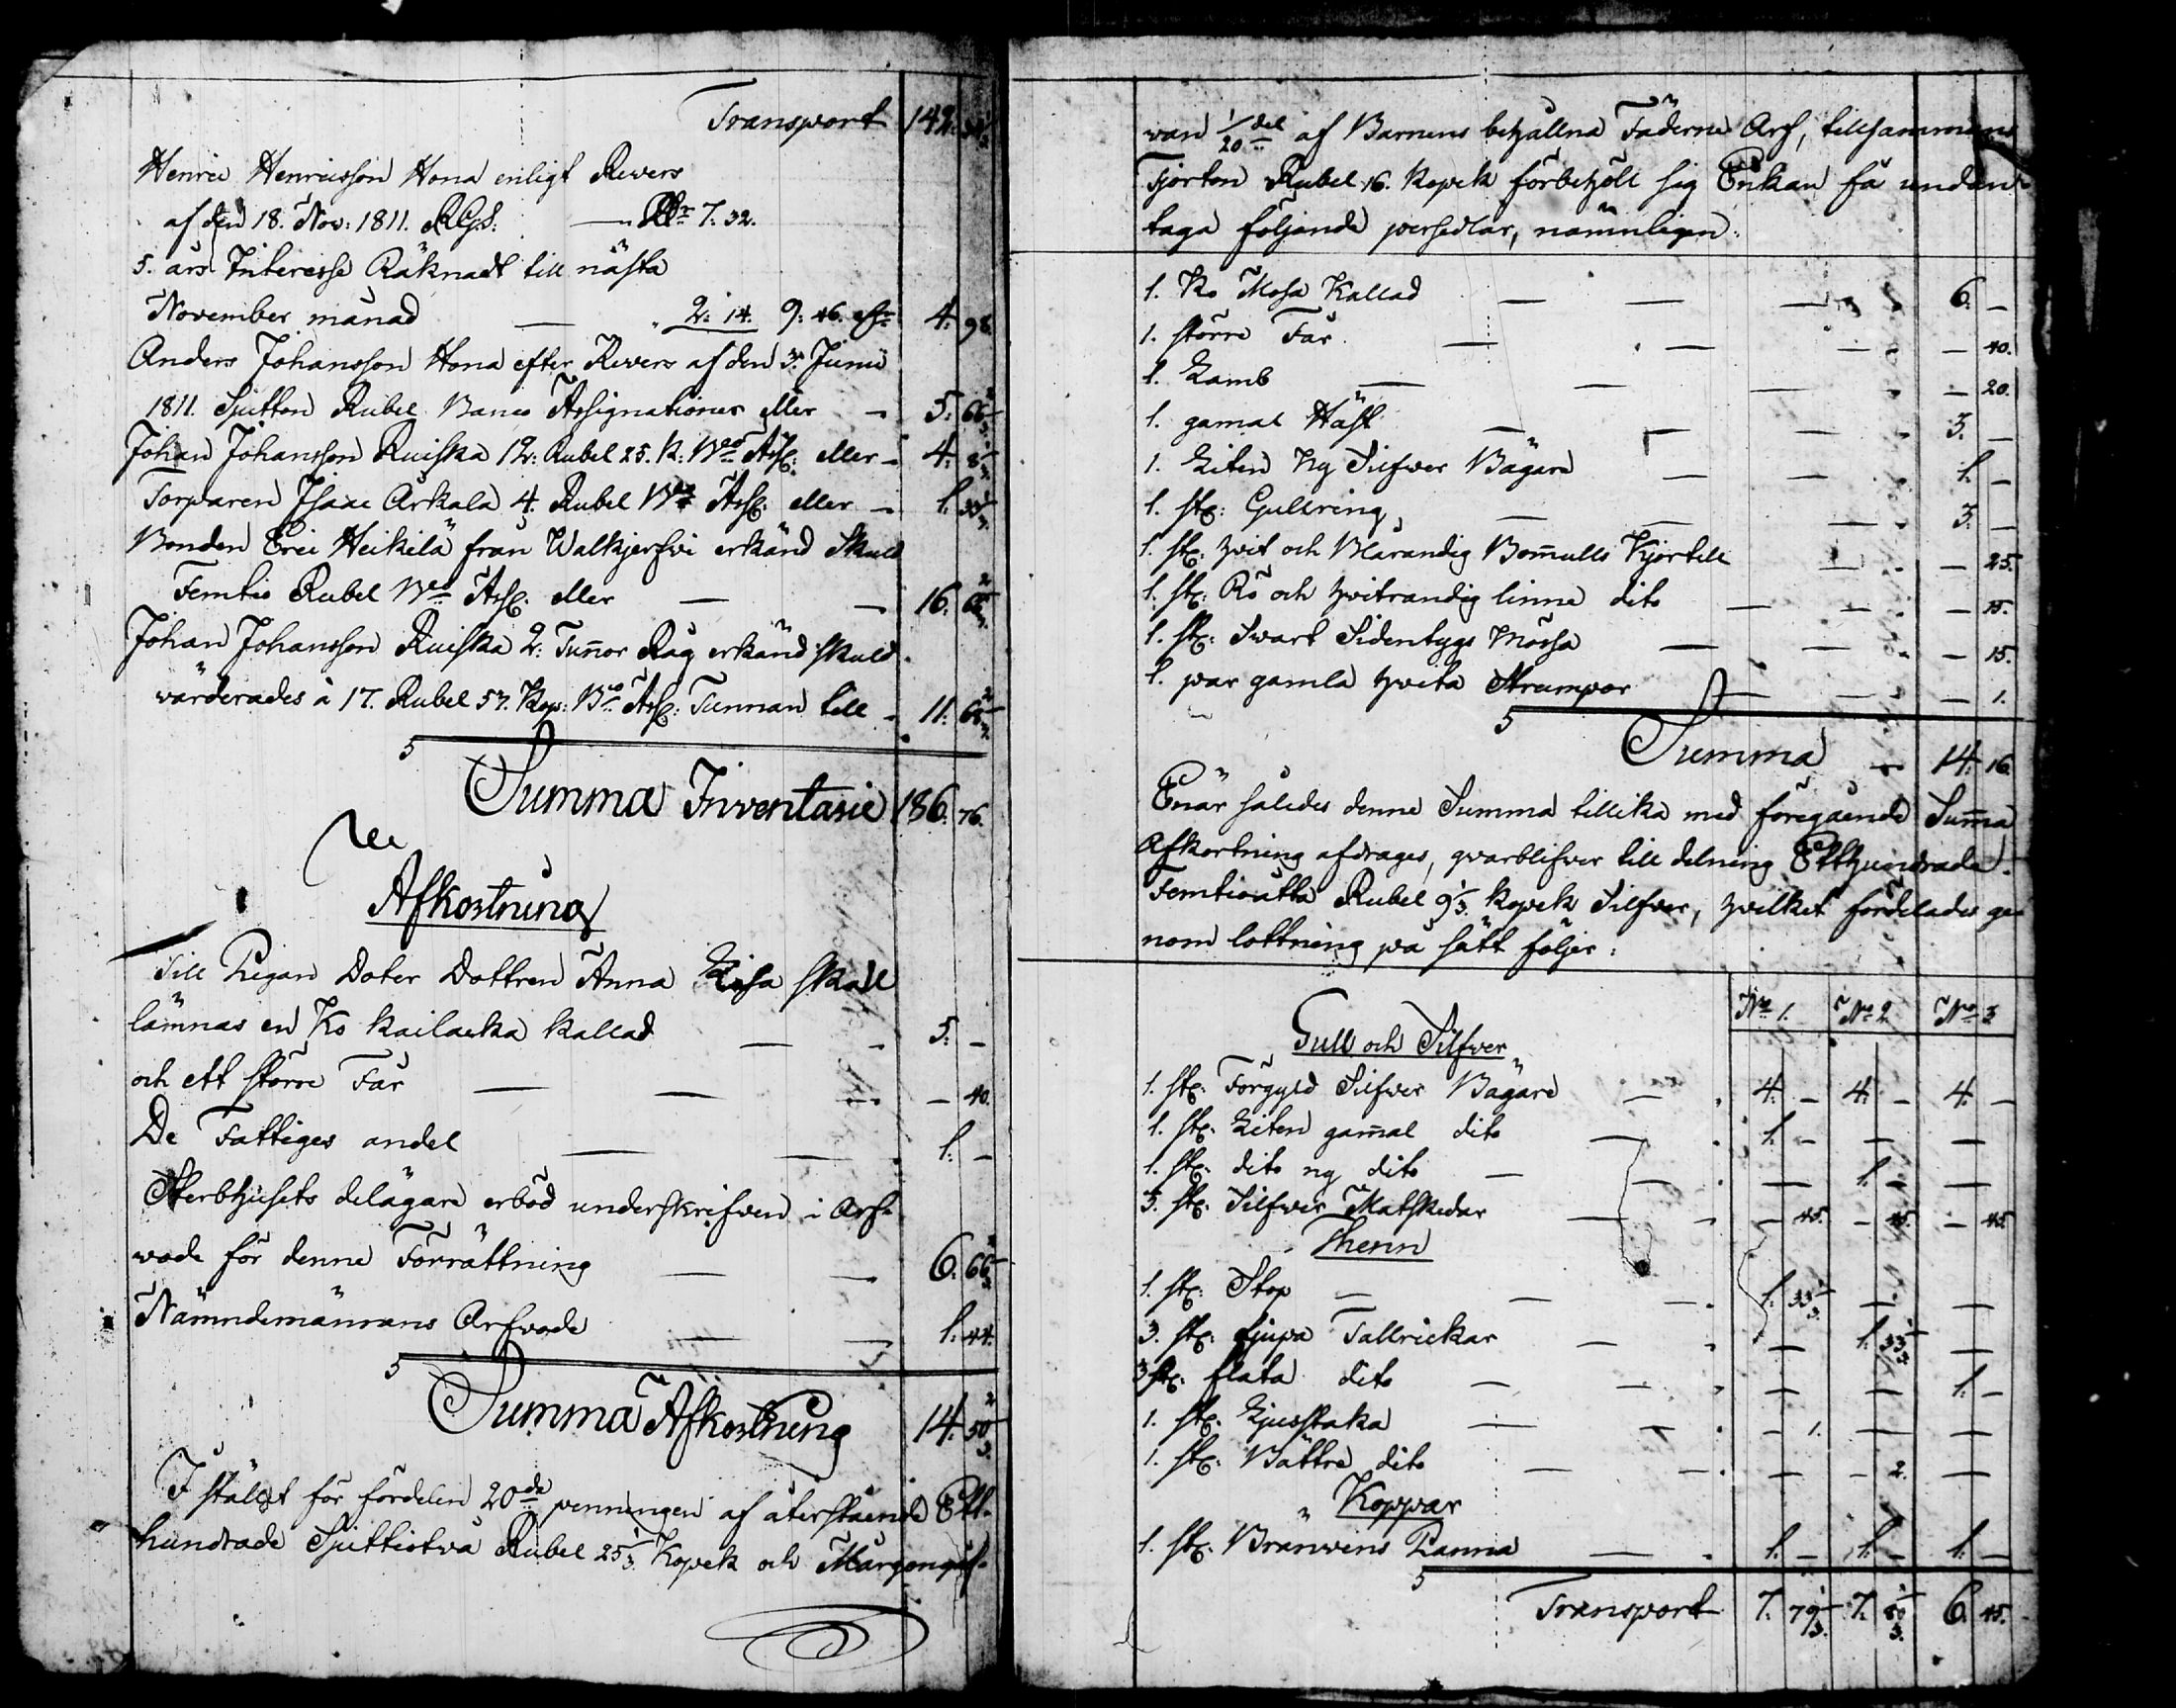 Transport 142. 34 1/3.
Henric Henricsson Hona enligt Revers
af den 18. Nov: 1811. RGS: — Rr 7. 32.
5. års Interesse Räknadt till nästa
November månad — 2: 14. 9: 46. eller 4. 98.
Anders Johansson Hona efter Revers af den 3. Junii
1811. Sjutton Rubel Banco Assignationer eller — 5. 66 2/3.
Johan Johansson Ruiska 12: Rubel 25. K: Bco Ass: eller — 4. 8 1/3.
Torparen Isaac Arkala 4. Rubel Bco Ass: eller — 1. 33 1/3.
Bonden Eric Heikelä från Walkjerfvi erkänd Skuld
Femtio Rubel Bco Ass: eller — — 16. 66 2/3.
Johan Johansson Ruiska 2: Tunnor Råg erkänd skuld
värderades à 17. Rubel 57. Kop: Bco Ass: Tunnan till — 11. 68 2/3.
Summa Inventarie 186. 76.
Afkortning
Till Pigan Doter Dottren Anna Lisa skall
lämnas en Ko kailacka kallad — — 5. —
och ett större Får — — — — 40.
De Fattiges andel — — 1. —
Sterbhusets delägare erböd underskrifven i Arf-
vode för denne Förrättning — — 6. 66 2/3.
Nämndemännens Arfvode — — 1. 44.
Summa Afkortning 14. 50 2/3.
I stället för fördelen 20de penningen af återstående Ett-
hundrade Sjuttiotvå Rubel 25 1/3. Kopek och Morgongåf-
van 1/20 del af Barnens behållna Fäderne Arf, tillsammans
Fjorton Rubel 16. Kopek förbehöll sig Enkan få undan-
taga följande persedlar, nämnligen:
1. Ko Mosa Kallad — — — 6. —
1. större Får — — — — 40.
1. Lamb — — — — 20.
1. gamal Häst — — — 3. —
1. Liten Ny Silfwer Bägare — — 1. —
1. st: Gullring, — — — 3. —
1. st: hvit och Blårandig Bomulls Kjortell — — — 25.
1. st: Rö och hvitrandig linne dito — — — 15.
1. st: Swart Sidentygs Mössa — — — 15.
1. par gamla hvita Strumpor — — — 1.
Summa — 14. 16.
Enär således denne Summa tillika med föregående Summa
Afkortning afdrages, qvarblifver till delning Etthundrade
Femtioåtta Rubel 9 1/3. kopek Silfver, hvilket fördelades ge-
nom lottning på sätt följer:
No 1. No 2. No 3.
Gull och Silfver
1. st: Förgyld Silfwer Bägare — 4. — 4. — 4. —
1. st: Liten gamal dito — 1. — — —
1. st: dito ny dito — — — 1. — —
3. st: Silfwer Matskedar — — 45. — 45. — 45.
Thenn
1. st: Stop — — — 1. 33 1/3. — —
3. st: djupa Tallrickar — — 1. 33 1/3. —
3 st: flata dito — — — — 1. —
1. st: Ljusstaka — — — 1. — —
1. st: Bättre dito — — — — 2. —
Koppar
1. st: Bränwins Panna — 1. — 1. — 1. —
Transport 7. 79 1/3. 7. 80 1/3. 6. 45.